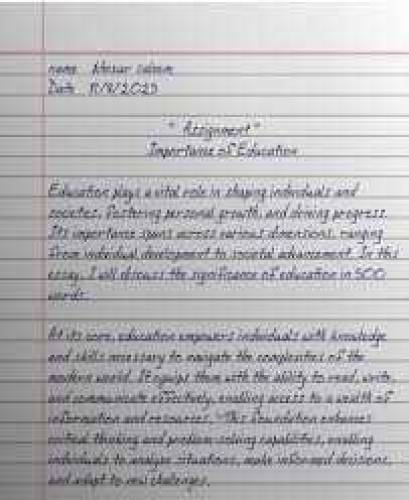 name
Date 11/8/2023
" Assignment "
Importance of Education
Education plays a vital role in shaping individuals and
societies, fostering personal growth, and driving progress.
Its importance spans across various dimensions, ranging
from individual development to societal advancement. In this
essay, I will discuss the significance of education in 500
words.
At its core, education empowers individuals with knowledge
and skills necessary to navigate the complexities of the
modern world. It equips them with the ability to read, write,
and communicate effectively, enabling access to a wealth of
information and resources. This foundation enhances
critical thinking and problem-solving capabilities, enabling
individuals to analyze situations, make informed decisions,
and adapt to new challenges.